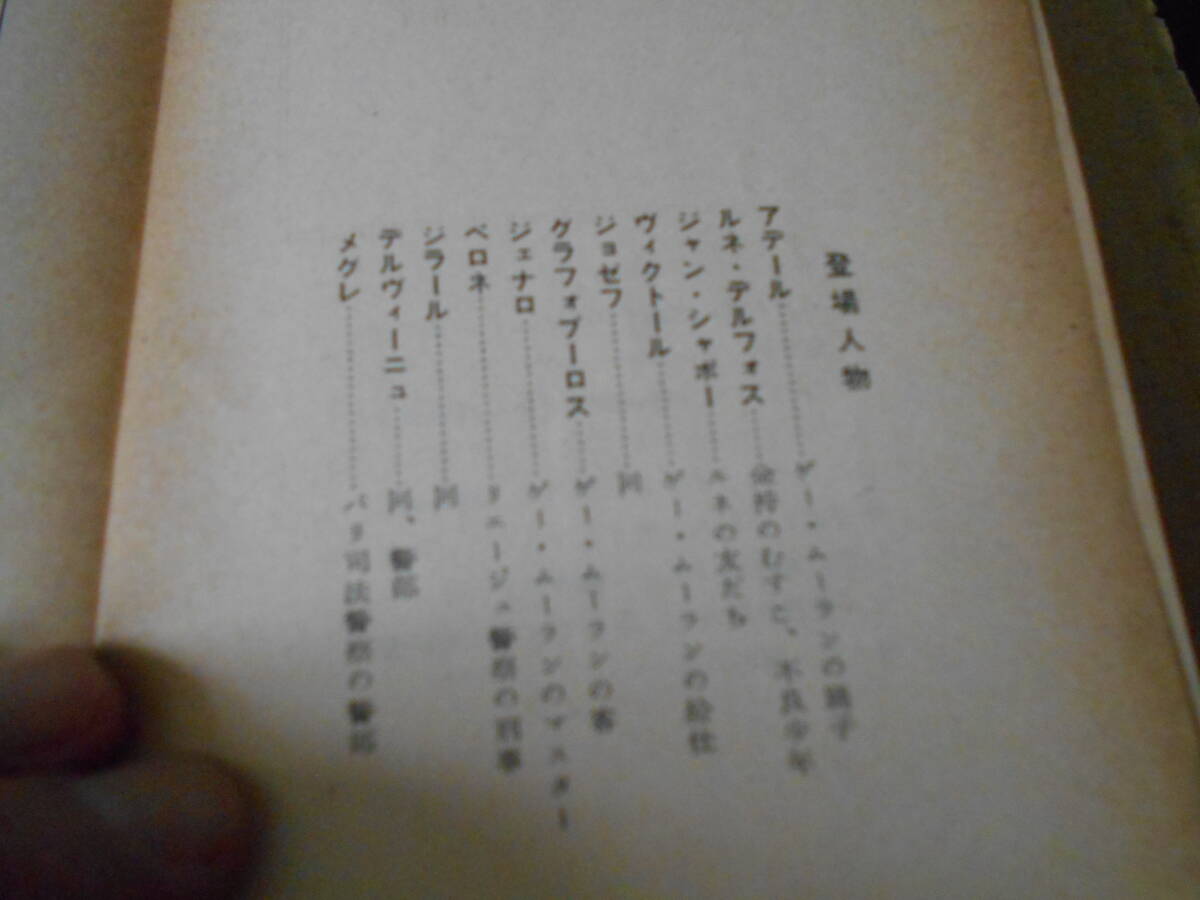 登場人物
アデール……ゲー・ムーランの踊子
ルネ・デルフォス……金持のむすこ、不良少年
ジャン・シャボー……ルネの友だち
ヴィクトール……ゲー・ムーランの給仕
ジョゼフ……同
グラフォプーロス……ゲー・ムーランの客
ジェナロ……ゲー・ムーランのマスター
ペロネ……リエージュ警察の刑事
ジラール……同
デルヴィーニュ……同、警部
メグレ……パリ司法警察の警部